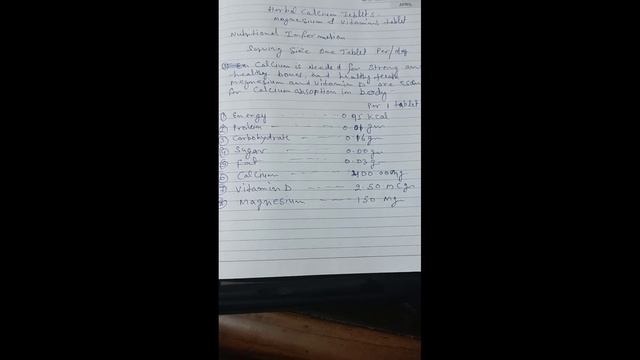 Herbal Calcium Tablets
Magnesium & Vitamins tablet
Nutritional Information
Serving Size One Tablet Per/day
Calcium is needed for strong an
healthy bones and healthy teeth
Magnesium and Vitamin D are
for Calcium absoption in body
Per 1 tablet
① Energy 0.95 kcal
② Protein 0.01 gm
③ Carbohydrate 0.16 gm
④ Sugar 0.00 gm
⑤ Fat 0.03 gm
⑥ Calcium 400.00 mg
⑦ Vitamin D 2.50 mcg
⑧ Magnesium 150 Mg